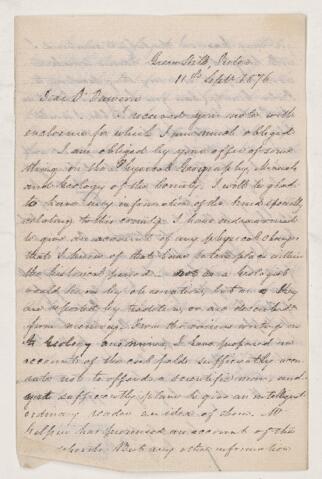 Green Hill, Pictou
11th Sept. 1876
Dear Dr Dawson
I received your note with
enclosure for which I am much obliged
I am obliged by your offer of some
thing on the Physical Geography, Minerals
and Geology of the County. I will be glad
to have any information of the kind specially
relating to this county. I have endeavoured
to give an account of any physical changes
that I know of that have taken place within
the historical period. not as a Geologist
would do on by observation, but as they
are reported by tradition, or are described
from memory. From the various writings on
Geology and mining, I have prepared an
account of the coal fields sufficiently accu
rate not to offend a scientific man, and
yet sufficiently plain to give an intelligent
ordinary reader an idea of them. Mr
has promised an account of the
But any other information